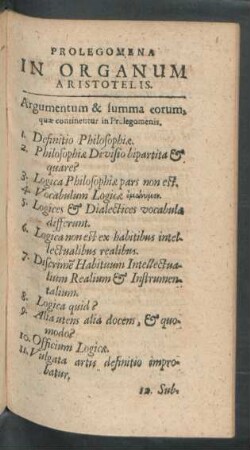 PROLEGOMENA
IN ORGANUM
ARISTOTELIS.
Argumentum & summa eorum,
quæ continentur in Prolegomenis.
1. Definitio Philosophiæ.
2. Philosophiæ Divisio bipartita &
quare?
3. Logica Philosophiæ pars non est.
4. Vocabulum Logicæ
5. Logices & Dialectices vocabula
differunt.
6. Logica non est ex habitibus intel-
lectualibus realibus.
7. Discrimē Habituum Intellectua-
lium Realium & Instrumen-
talium.
8. Logica quid?
9. Alia utens alia docens, & quo-
modo?
10. Officium Logicæ.
11. Vulgata artis definitio impro-
batur,
12. Sub-